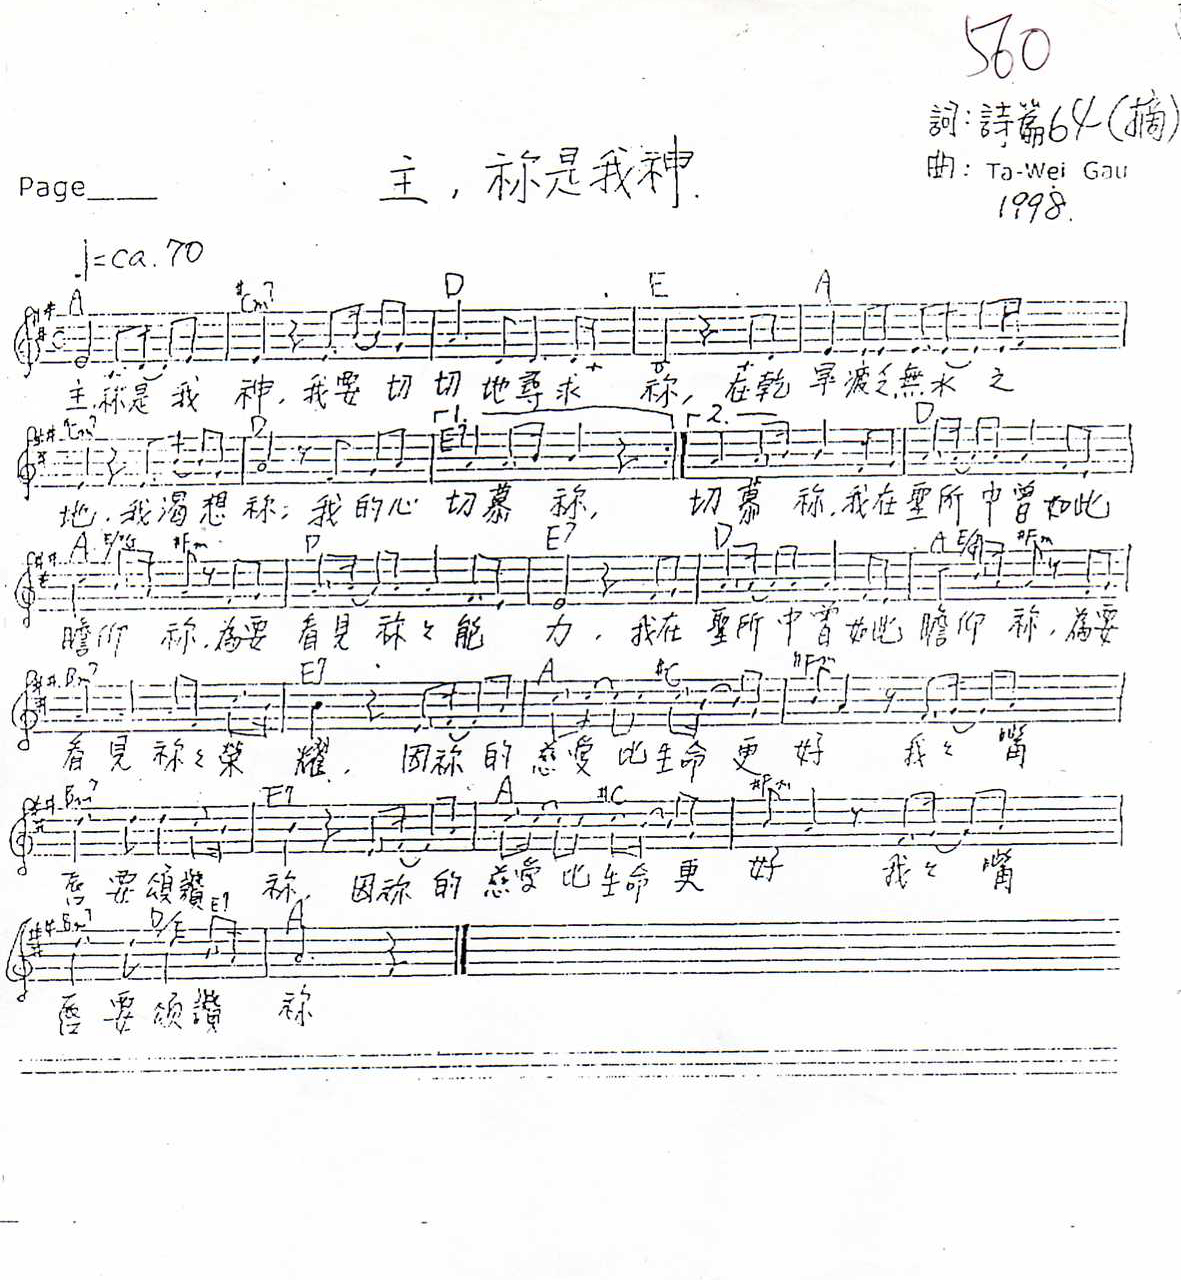 560
詞：詩篇64(摘)
主，祢是我神.
Page____
曲：Ta-Wei Gau
1998.
♩=ca.70
A #Cm7 D E A
主,祢是我神,我要切切地尋求祢,在乾旱疲乏無水之
#Cm7 D 1. E7 2. D
地,我渴想祢;我的心切慕祢,切慕祢,我在聖所中曾如此
A E/#G #Fm D E7 D A E/#G #Fm
瞻仰祢,為要看見祢之能力,我在聖所中曾如此瞻仰祢,為要
Bm7 E7 A #C #Fm
看見祢之榮耀,因祢的慈愛比生命更好我之嘴
Bm7 E7 A #C #Fm
唇要頌讚祢,因祢的慈愛比生命更好我之嘴
Bm7 D/E E7 A
唇要頌讚祢